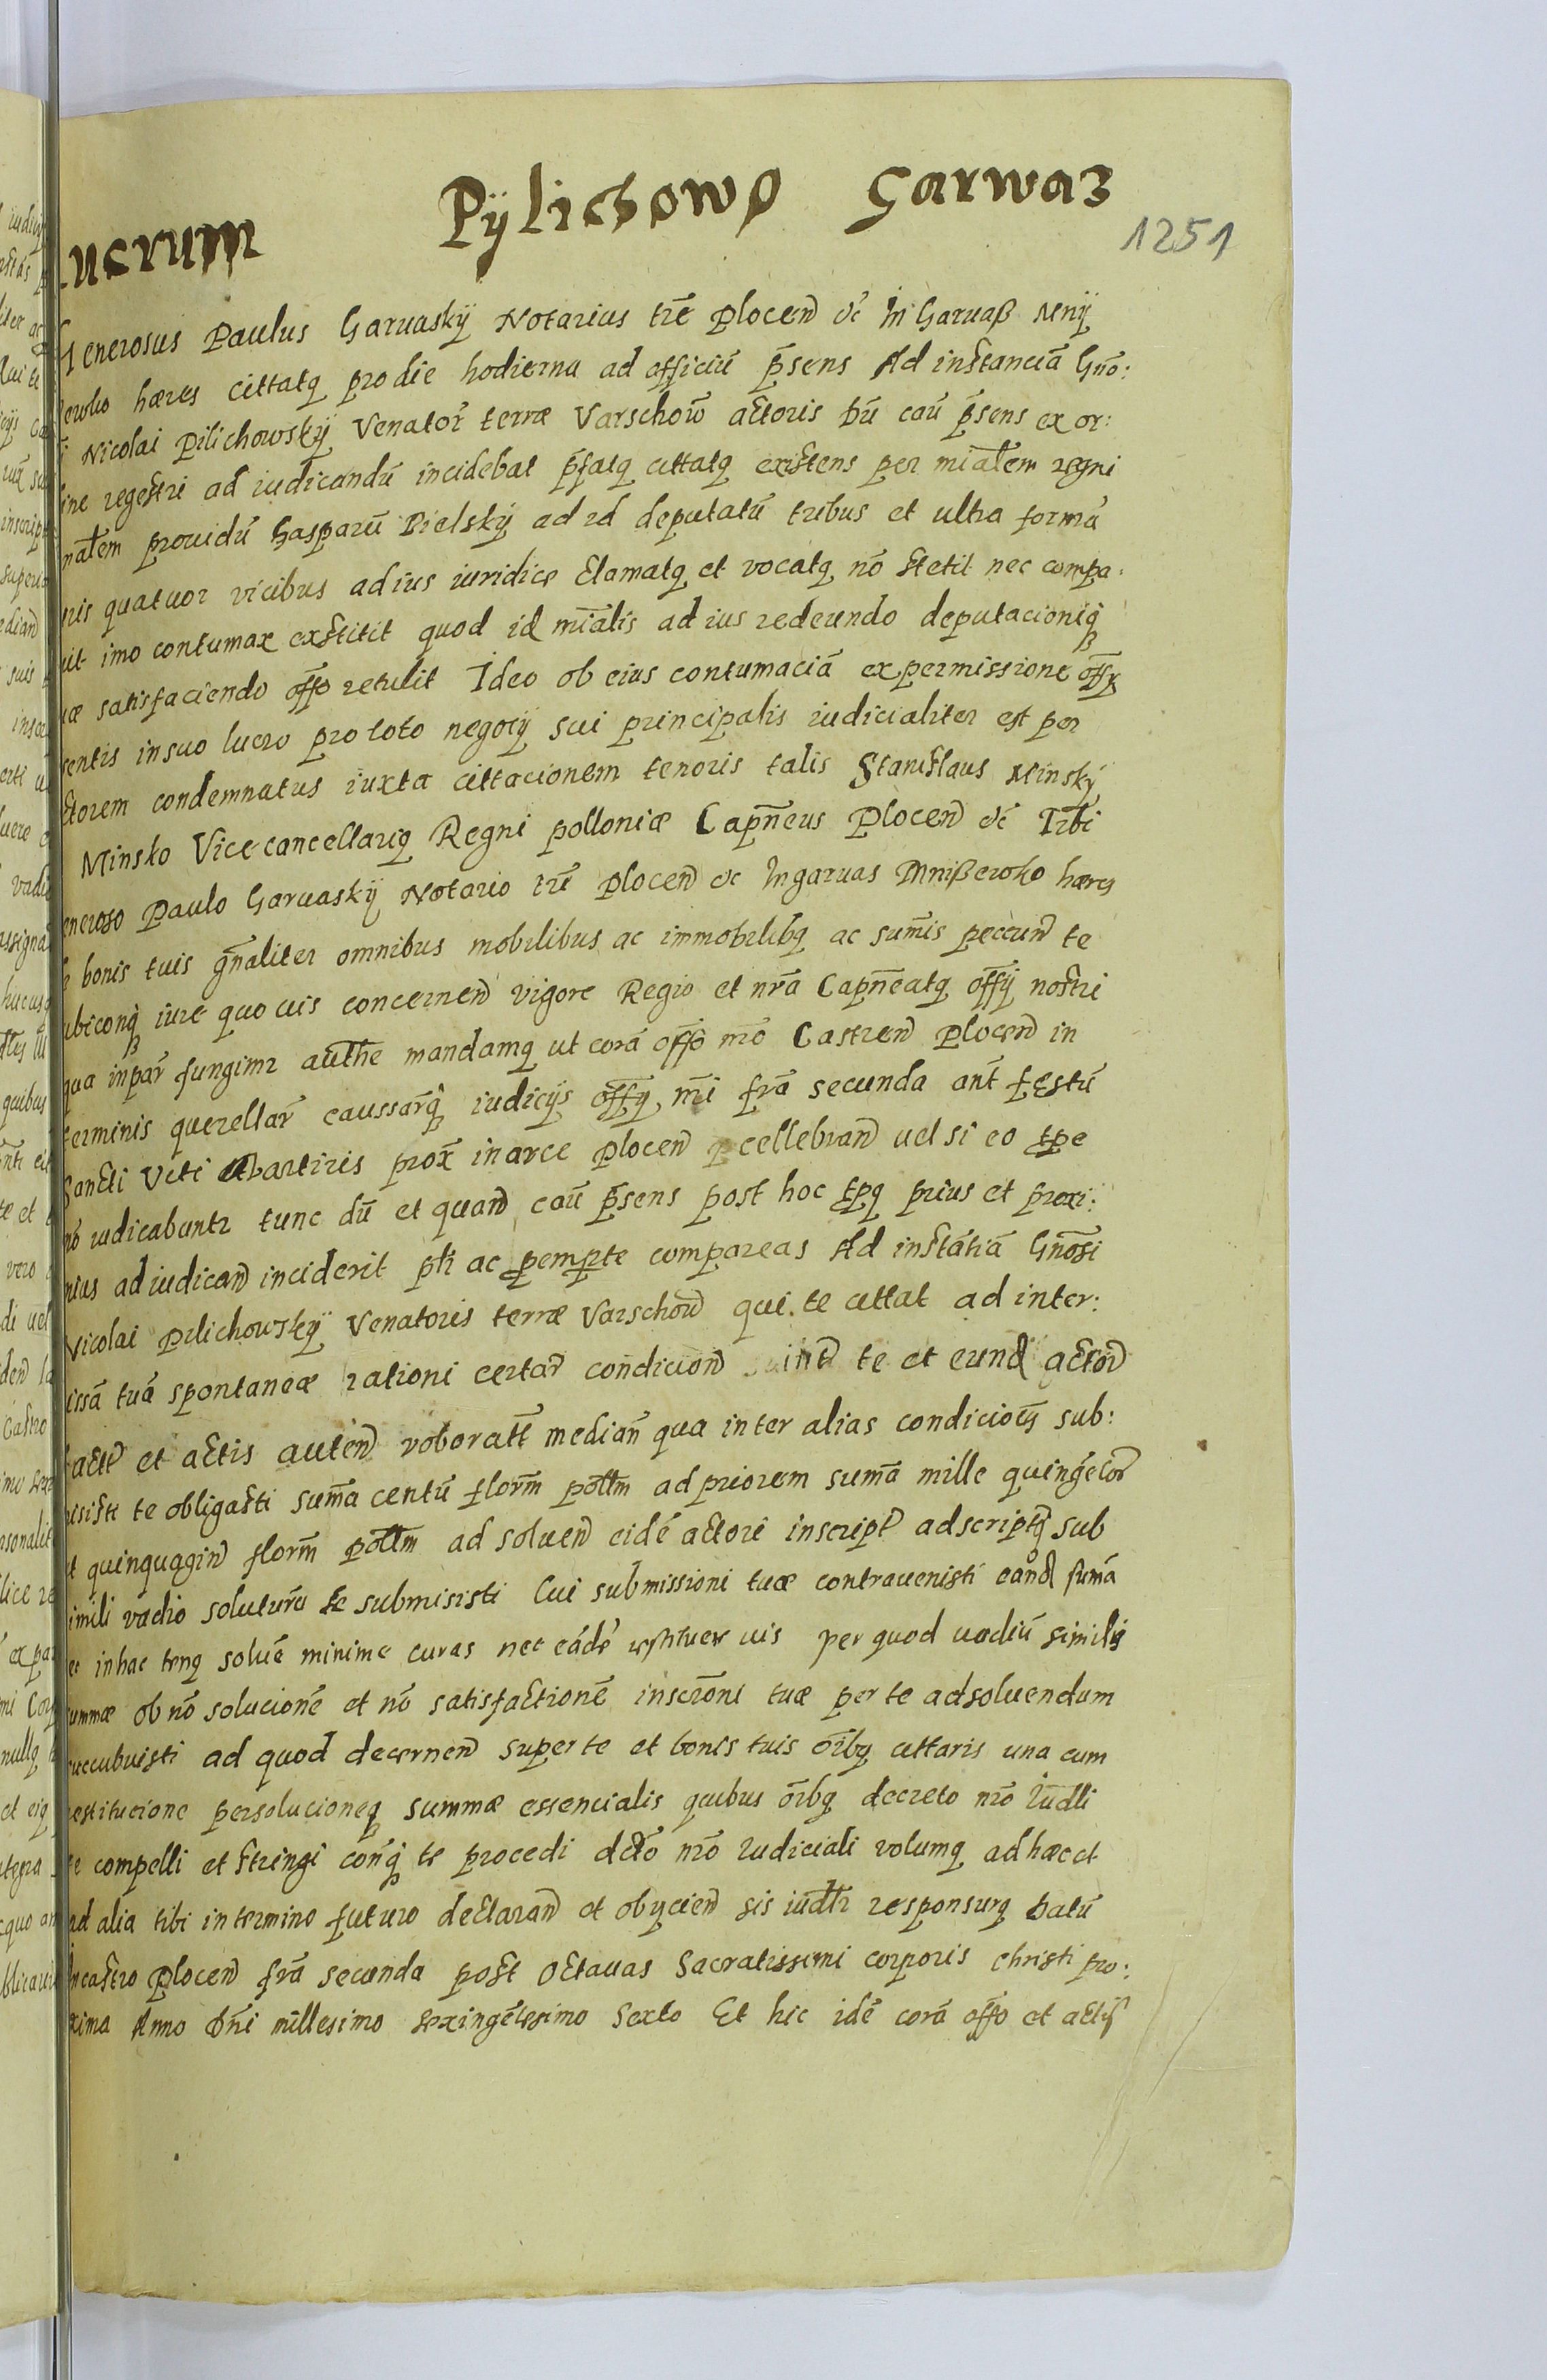 Lucrum Pÿlichowo Garwaz
1251
Generosus Paulus Garuaskÿ Notarius tr̃e Plocen̄ &c in Garuaß Mnÿ
hæres cittatq̨ pro die hodierna ad officiũ p̃sens Ad instanciã Gño:
Nicolai Pilichowskÿ Venator̃ terræ Varschow̃ actoris dũ caũ p̃sens ex or:
ine regestri ad iudicandũ incidebat p̃fatq̨ cittatq̨ existens per mial̃em regni
nal̃em prouidũ Gasparũ Bielskÿ ad id deputatũ tribus et ultra formã
ris quatuor vicibus ad ius iuridice clamatq̨ et vocatq̨ nõ stetit nec compa:
uit imo contumax exstitit quod id miñalis ad ius redeundo deputacioniq̨
uæ satisfaciendo off̃o retulit Ideo ob eius contumaciã ex permissione off̃y
sentis in suo lucro pro toto negocÿ sui principalis iudicialiter est per
ctorem condemnatus iuxta cittacionem tenoris talis Stanislaus Minskÿ
Minsko Vicecancellariq̨ Regni polloniæ Capñeus Plocen̄ &c Tibi
eneroso Paulo Garuaskÿ Notario tr̃e plocen̄ &c In garuas Mnißewko hæres
bonis tuis gñaliter omnibus mobilibus ac immobilibq̨ ac sum̃is peccun̄ te
ubiconq̨ iure quo uis concernen̄ vigore Regio et nr̃a Capñeatq̨ off̃ÿ nostri
qua in par̃ fungimr autħe mandamq̨ ut corã off̃o nr̃o Castren̄ Plocen̄ in
terminis querellar̃ caussar̃q̨ iudicÿs off̃ÿ nr̃i fr̃a secunda ant̃ festũ
Sancti Viti Martiris prox̃ in arce plocen̄ cellebran̄ uel si eo tp̃e
nõ iudicabuntr tunc dũ et quan̄ caũ p̃sens post hoc tp̃q̨ prius et proxi:
mius ad iudican̄ inciderit pl̃r ac pempt̃e compareas Ad instãtiã Gñosi
Nicolai Pilichowskÿ Venatoris terræ Varschow̃ qui te cittat ad inter:
issã tuã spontaneæ rationi certar̃ condicion̄ int̃ te et eund actor̃
fact̃ et actis auten̄ roboratt̃ median̄ qua inter alias condiciões sub:
misisti te obligasti sum̃a centũ flor̃m poll̃m ad priorem sum̃a mille quingẽtor̃
et quinquagin̄ flor̃m poll̃m ad soluen̄ eidẽ actori inscript̃ adscriptq̨ sub
simili vadio soluturũ te submisisti Cui submissioni tuæ contrauenisti eand sum̃ã
ec in hac tenq̨ soluẽ minime curas nec eãdẽ restituere uis per quod uadiũ similis
summæ ob nõ solucionẽ et nõ satisfactionẽ inscr̃oni tuæ per te ad soluendum
succubuisti ad quod decernen̄ super te et bonis tuis oĩbq̨ cittaris una cum
restitucione persolucioneq̨ summæ essencialis quibus oĩbq̨ decreto nr̃o Iudl̃i
te compelli et stringi conq̨ te procedi dcr̃o nr̃o Iudiciali volumq̨ ad hæc et
ad alia tibi in termino futuro declaran̄ et obÿcien̄ sis iudl̃r responsurq̨ Datũ
In castro Plocen̄ fr̃a secunda post Octauas Sacratissimi corporis christi pro:
xima Anno Dñi millesimo sexingẽtesimo Sexto Et hic idẽ corã off̃o et actis